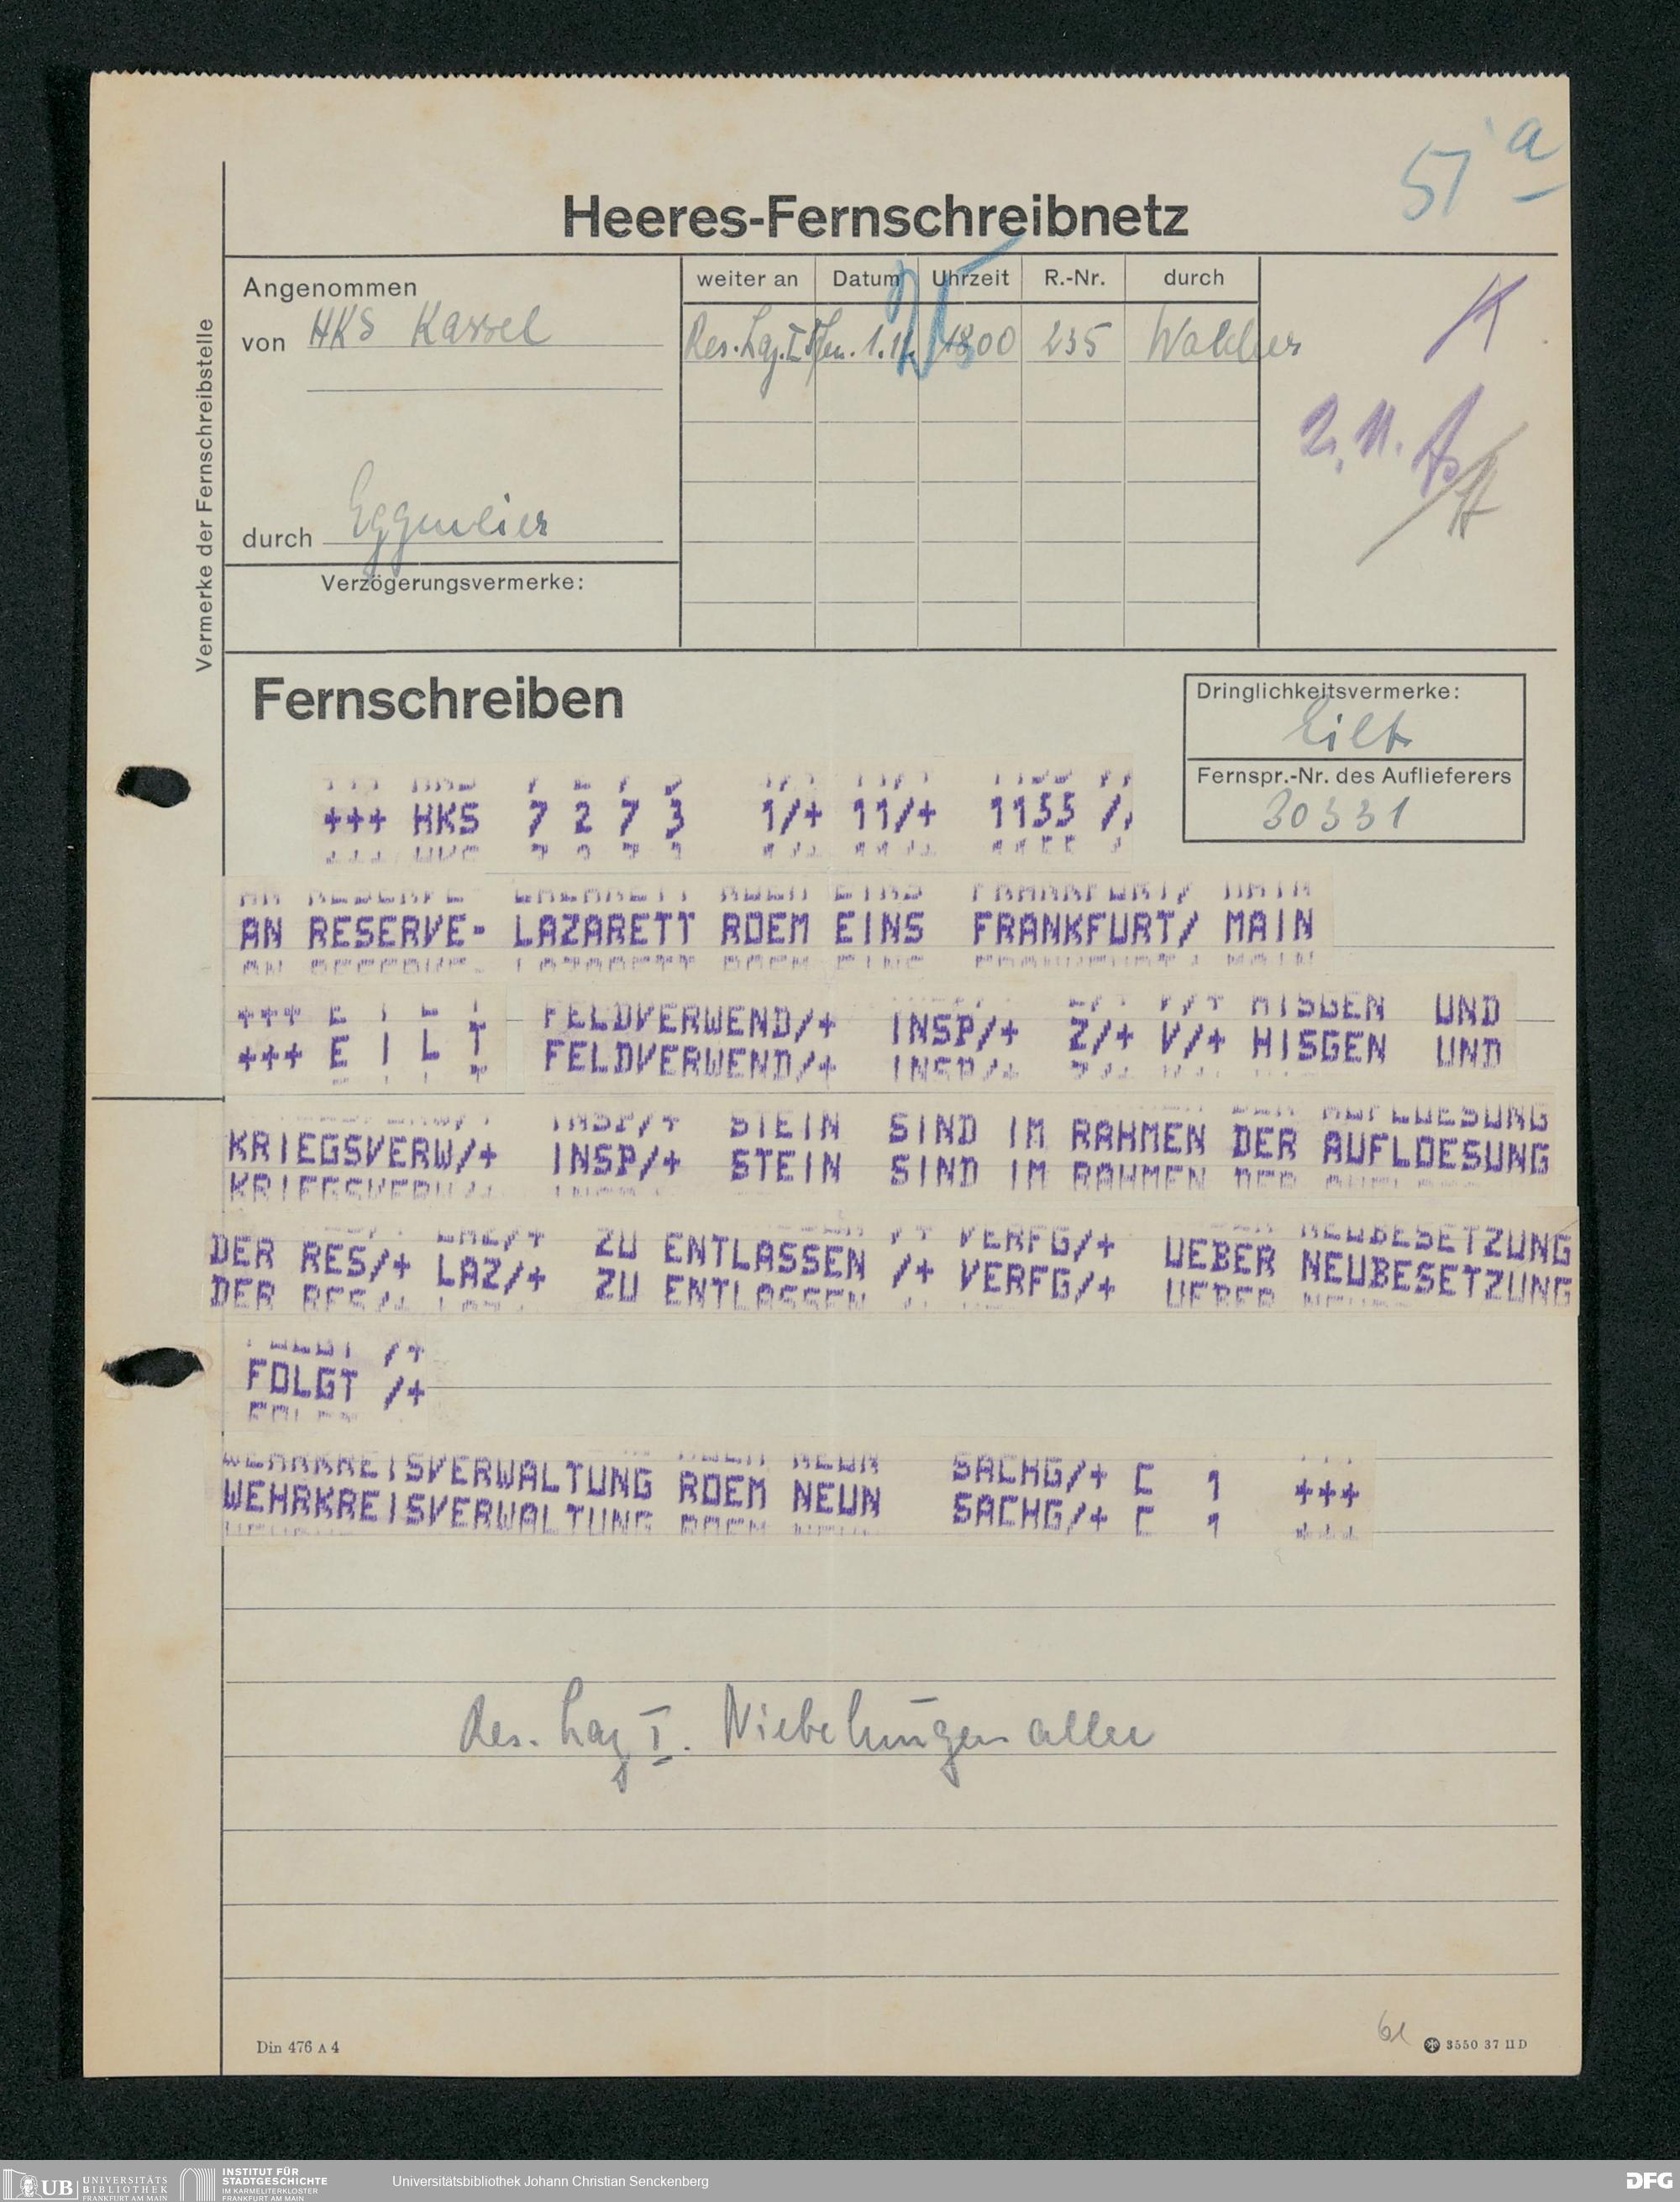 51 a
Heeres-Fernschreibnetz
Vermerke der Fernschreibstelle
Angenommen
von HKS Kassel
durch Eggmeier
Verzögerungsvermerke:
weiter an Datum Uhrzeit R.-Nr. durch
Res. Laz. I 1.11. 1800 235
2.11.
Fernschreiben
Dringlichkeitsvermerke:
Eilt
Fernspr.-Nr. des Auflieferers
30331
+++ HKS 7 2 7 3 1/+ 11/+ 1155 /,
AN RESERVE- LAZARETT ROEM EINS FRANKFURT/ MAIN
+++ E I L T FELDVERWEND/+ INSP/+ Z/+ V/+ HISGEN UND
KRIEGSVERW/+ INSP/+ STEIN SIND IM RAHMEN DER AUFLOESUNG
DER RES/+ LAZ/+ ZU ENTLASSEN /+ VERFG/+ UEBER NEUBESETZUNG
FOLGT /+
WEHRKREISVERWALTUNG ROEM NEUN SACHG/+ C 1 +++
Res. Laz I. Niebelungen allee
61
Din 476 A 4
3550 37 II D
UB UNIVERSITÄTS
BIBLIOTHEK
FRANKFURT AM MAIN
INSTITUT FÜR
STADTGESCHICHTE
IM KARMELITERKLOSTER
FRANKFURT AM MAIN
Universitätsbibliothek Johann Christian Senckenberg
DFG